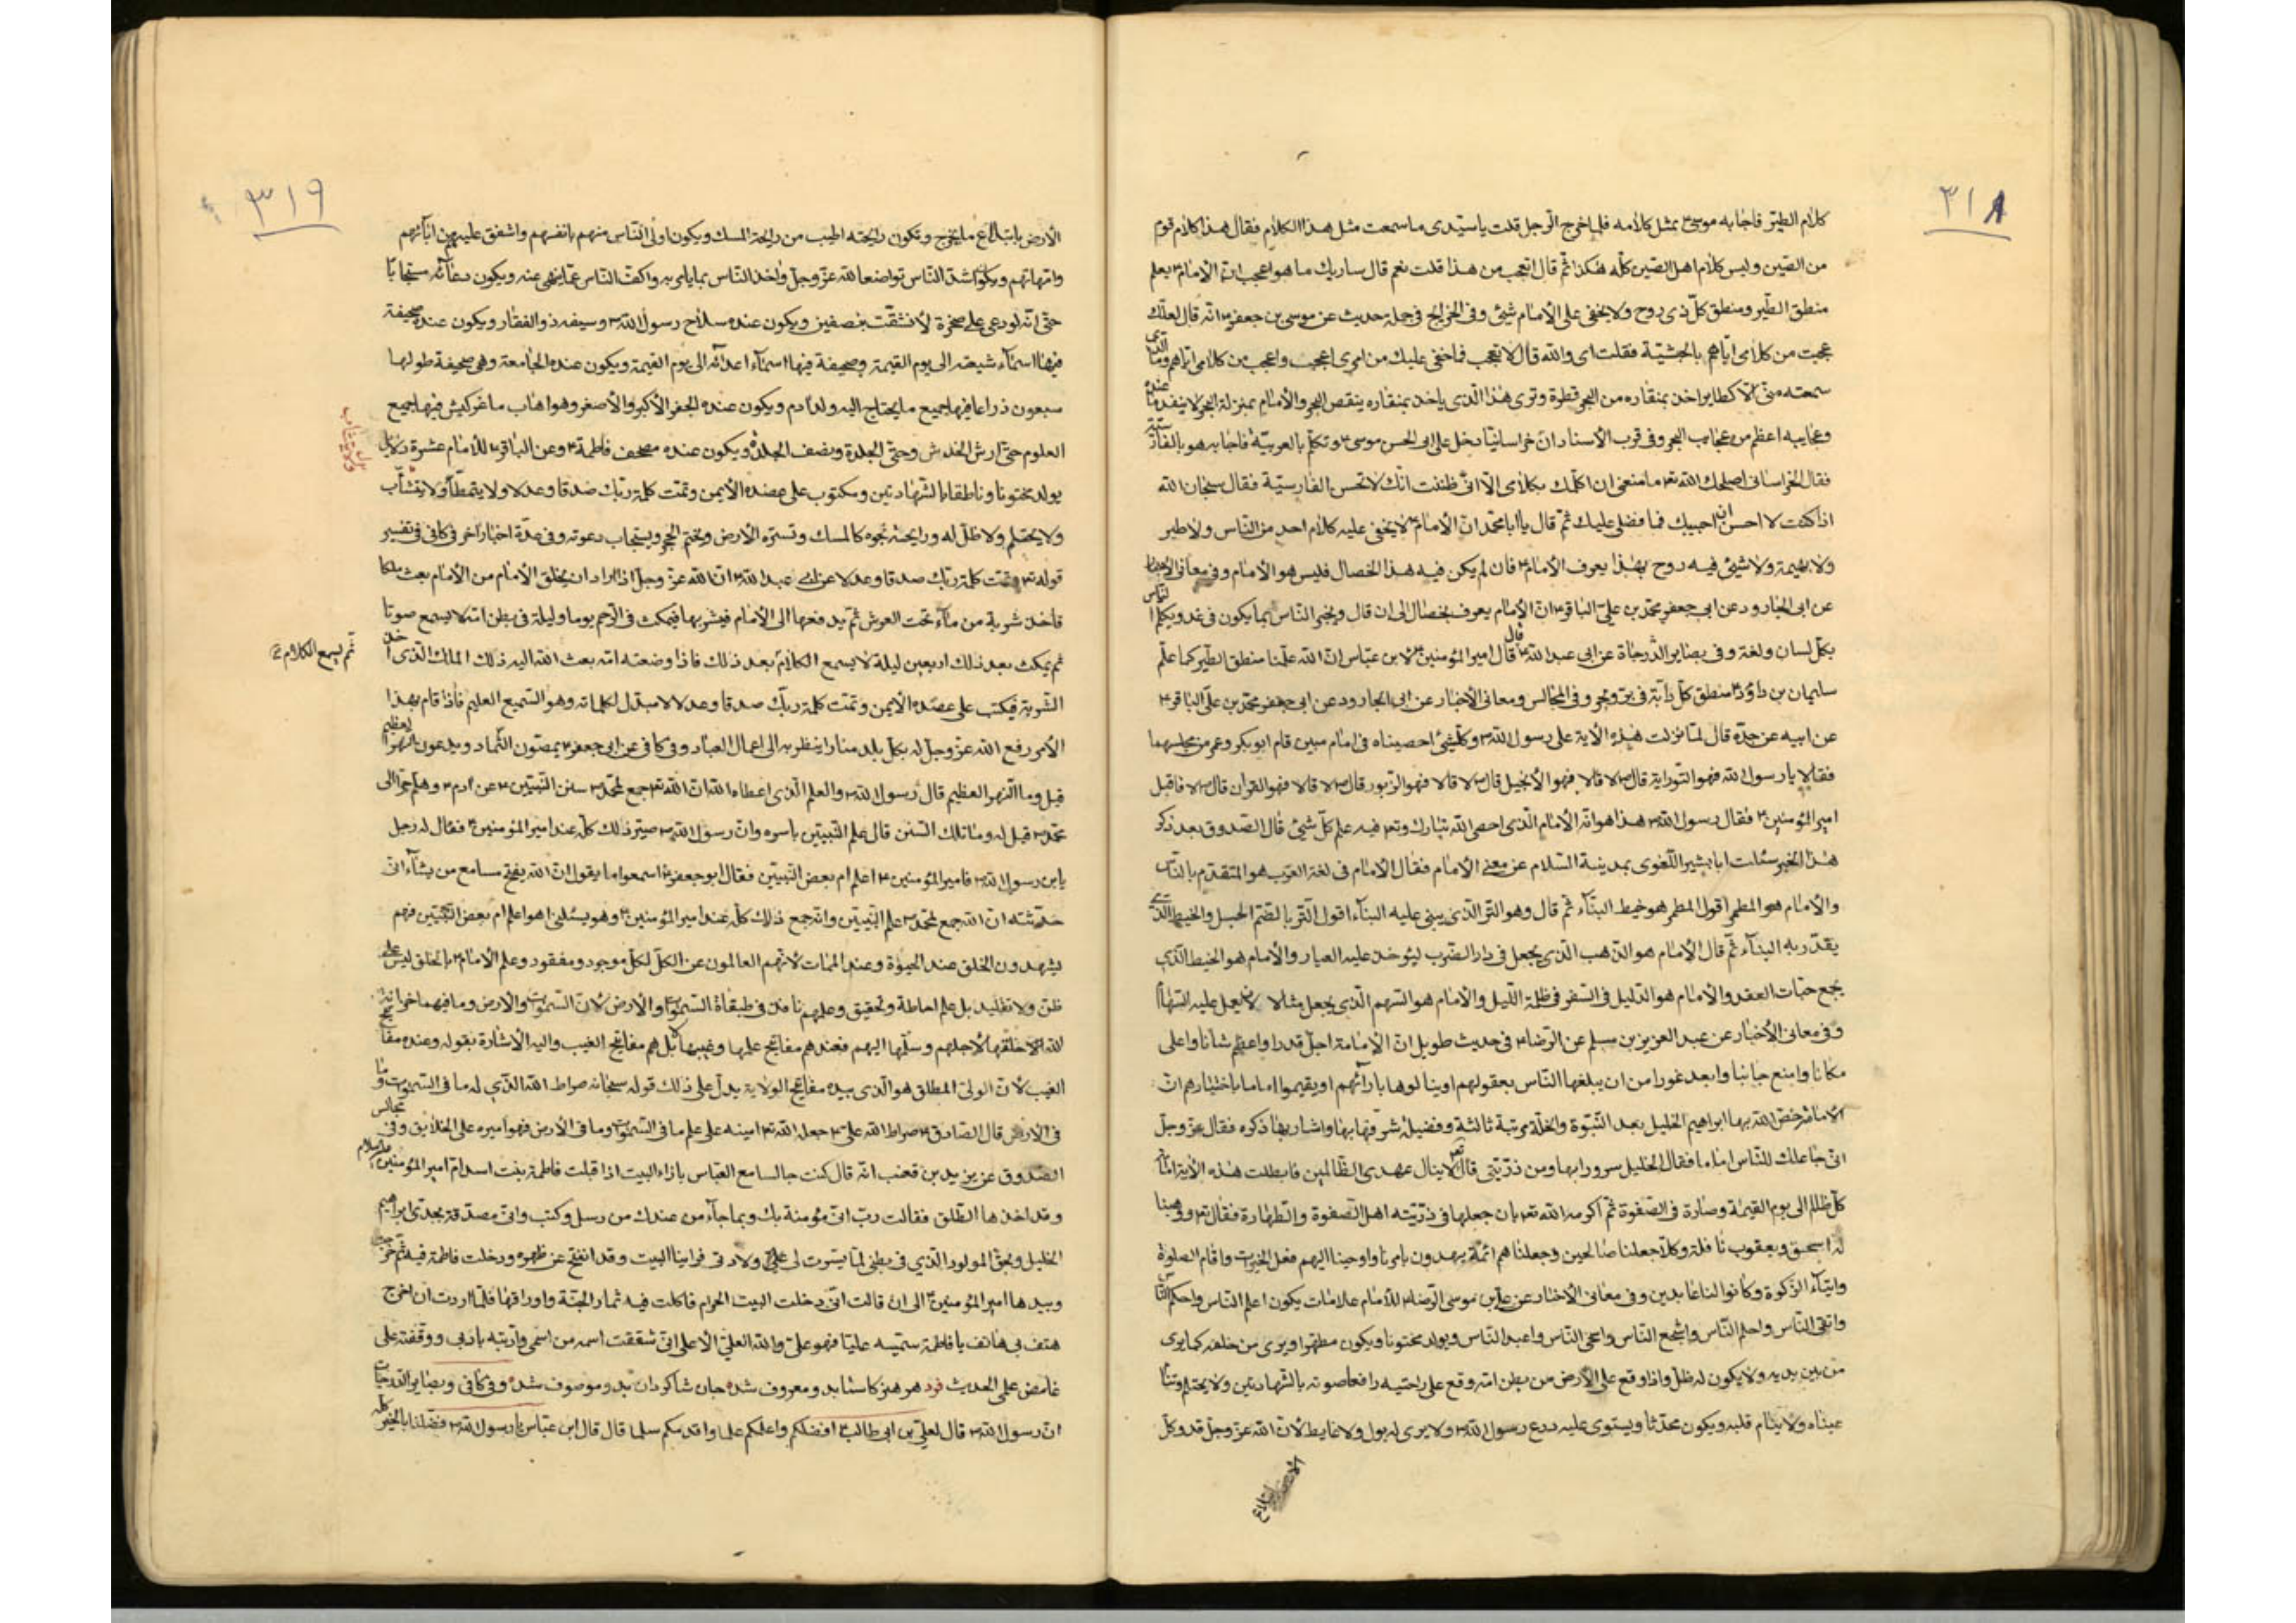 ٣١٨
كلام الطير فاجابه موسى ع بمثل كلامه فلما خرج الرجل قلت يا سيدى ما سمعت مثل هذا الكلام فقال هذا كلام قوم
من الصين وليس كلام اهل الصين كله هكذا ثم قال اتعجب من هذا قلت نعم قال ساريك ما هو اعجب ان الامام ع يعلم
منطق الطير ومنطق كل ذى روح ولا يخفى على الامام شيئ وفى الخرايج فى جملة حديث عن موسى بن جعفر ع انه قال لعلك
عجبت من كلامى اياهم بالحبشية فقلت اى والله قال لا تعجب فما خفى عليك من امرى اعجب واعجب من كلامى اياهم وما الذى
سمعته منى الا كطاير اخذ بمنقاره من البحر قطرة وترى هذا الذى ياخذ بمنقاره ينقص البحر والامام بمنزلة البحر لا ينفد ما عنده
وعجايبه اعظم من عجايب البحر وفى قرب الاسناد ان خراسانيا دخل على ابى الحسن موسى ع وتكلم بالعربية فاجابه هو بالفارسية
فقال الخراسانى اصلحك الله ما منعنى ان اكلمك بكلامى الا انى ظننت انك لا تحسن الفارسية فقال سبحان الله
اذا كنت لا احسن ان اجيبك فما فضلى عليك ثم قال يا ابا محمد ان الامام ع لا يخفى عليه كلام احد من الناس ولا طير
ولا بهيمة ولا شيئ فيه روح بهذا يعرف الامام ع فان لم يكن فيه هذا الخصال فليس هو الامام وفى معانى الاخبار
عن ابى الجارود عن ابى جعفر محمد بن على الباقر ع ان الامام يعرف بخصال الى ان قال ويخبر الناس بما يكون فى غد ويكلم الناس
بكل لسان ولغة وفى بصاير الدرجاة عن ابى عبد الله ع قال قال امير المؤمنين ع لابن عباس ان الله علمنا منطق الطير كما علم
سليمان بن داود ع منطق كل دابة فى بر وبحر وفى المجالس ومعانى الاخبار عن ابى الجارود عن ابى جعفر محمد بن على الباقر ع
عن ابيه عن جده قال لما نزلت هذه الاية على رسول الله ص وكلشيئ احصيناه فى امام مبين قام ابو بكر وعمر من مجلسهما
فقالا يا رسول الله فهو التوراية قال ص لا قالا فهو الانجيل قال ص لا قالا فهو الزبور قال ص لا قالا فهو القران قال ص لا فاقبل
امير المؤمنين ع فقال رسول الله ص هذا هو انه الامام الذى احصى الله تبارك وتع فيه علم كل شيئ قال الصدوق بعد ذكر
هذا الخبر سئلت ابا بشير اللغوى بمدينة السلام عن معنى الامام فقال الامام فى لغة العرب هو المتقدم بالناس
والامام هو المطمر اقول المطمر هو خيط البناء ثم قال وهو التر الذى يبنى عليه البناء اقول التر بالضم الحبل والخيط الذى
يقدر به البناء ثم قال الامام هو الذهب الذى يجعل فى دار الضرب ليؤخذ عليه العيار والامام هو الخيط الذى
يجمع حبات العقد والامام هو الدليل فى السفر فى ظلمة الليل والامام هو السهم الذى يجعل مثالا يعمل عليه السهام
وفى معانى الاخبار عن عبد العزيز بن مسلم عن الرضا ع فى حديث طويل ان الامامة اجل قدرا واعظم شانا واعلى
مكانا وامنع جانبا وابعد غورا من ان يبلغها الناس بعقولهم او ينالوها بارائهم او يقيموا اماما باختيارهم ان
الامامة خص الله بها ابراهيم الخليل بعد النبوة والخلة مرتبة ثالثة وفضيلة شرفه بها واشار بها ذكره فقال عز وجل
انى جاعلك للناس اماما فقال الخليل سرورا بها ومن ذريتى قال تع لا ينال عهدى الظالمين فابطلت هذه الاية امامة
كل ظالم الى يوم القيمة وصارة فى الصفوة ثم اكرمه الله تع بان جعلها فى ذريته اهل الصفوة والطهارة فقال تع ووهبنا
له اسحق ويعقوب نافلة وكلا جعلنا صالحين وجعلناهم ائمة يهدون بامرنا واوحينا اليهم فعل الخيرات واقام الصلوة
وايتاء الزكوة وكانوا لنا عابدين وفى معانى الاخبار عن على بن موسى الرضا ع للامام علامات يكون اعلم الناس واحكم الناس
واتقى الناس واحلم الناس واشجع الناس واسخى الناس واعبد الناس ويولد مختونا ويكون مطهرا ويرى من خلفه كما يرى
من بين يديه ولا يكون له ظل واذا وقع على الارض من بطن امه وقع على راحتيه رافعا صوته بالشهادتين ولا يحتلم وتنام
عيناه ولا ينام قلبه ويكون محدثا ويستوى عليه درع رسول الله ص ولا يرى له بول ولا غايط لان الله عز وجل قد وكل
الارض بابتلاع
٣١٩
الارض بابتلاع ما يخرج وتكون رايحته اطيب من رايحة المسك ويكون اولى الناس منهم بانفسهم واشفق عليهم من ابائهم
وامهاتهم ويكون اشد الناس تواضعا لله عز وجل واخذ الناس بما يامر به واكف الناس عما ينهى عنه ويكون دعائه مستجابا
حتى انه لو دعى على صخرة لانشقت بنصفين ويكون عنده سلاح رسول الله ص وسيفه ذو الفقار ويكون عنده صحيفة
فيها اسماء شيعته الى يوم القيمة وصحيفة فيها اسماء اعدائه الى يوم القيمة ويكون عنده الجامعة وهى صحيفة طولها
سبعون ذراعا فيها جميع ما يحتاج اليه ولد ادم ويكون عنده الجفر الاكبر والاصغر وهو اهاب ماعز كبش فيها جميع
العلوم حتى ارش الخدش وحتى الجلدة ونصف الجلدة ويكون عنده مصحف فاطمة ع وعن الباقر ع للامام عشرة دلايل
يولد مختونا وناطقا بالشهادتين ومكتوب على عضده الايمن وتمت كلمة ربك صدقا وعدلا ولا يتمطا ولا يتثأب
ولا يحتلم ولا ظل له ورايحة نجوه كالمسك وتستره الارض ويختم الحجر ويستجاب دعوته وفى عدة اخبار اخر فى كافى فى تفسير
قوله تع وتمت كلمة ربك صدقا وعدلا عن ابى عبد الله ع ان الله عز وجل اذا اراد ان يخلق الامام من الامام بعث ملكا
فاخذ شربة من ماء تحت العرش ثم يدفعها الى الامام فيشربها فيمكث فى الرحم يوما وليلة فى بطن امه لا يسمع صوتا
ثم يسمع الكلام
ثم يمكث بعد ذلك اربعين ليلة لا يسمع الكلام بعد ذلك فاذا وضعته امه بعث الله اليه ذلك الملك الذى اخذ
الشربة فيكتب على عضده الايمن وتمت كلمة ربك صدقا وعدلا لا مبدل لكلماته وهو السميع العليم فاذا قام بهذا
الامر رفع الله عز وجل له بكل بلد منارا ينظر به الى اعمال العباد وفى كافى عن ابى جعفر ع يمصون الثماد ويدعون النهر العظيم
قيل وما النهر العظيم قال رسول الله ص والعلم الذى اعطاه الله ان الله تع جمع لمحمد ص سنن النبيين ع من ادم ع وهلم جرا الى
محمد ص قيل له وما تلك السنن قال علم النبيين باسره وان رسول الله ص صير ذلك كله عند امير المؤمنين ع فقال له رجل
يابن رسول الله ص فامير المؤمنين ع اعلم ام بعض النبيين فقال ابو جعفر ع اسمعوا ما يقول ان الله يفتح مسامع من يشاء انى
حدثته ان الله جمع لمحمد ص علم النبيين وانه جمع ذلك كله عند امير المؤمنين ع وهو يسئلنى اهو اعلم ام بعض النبيين فهم
يشهدون الخلق عند الحيوة وعند الممات لانهم العالمون عن الكل لكل موجود ومفقود وعلم الامام ع بالخلق ليس علم
ظن ولا تقليد بل علم احاطة وتحقيق وعلمهم نافذ فى طبقاة السموات والارض لان السموات والارض وما فيهما خزانة
الله خلقها لاجلهم وسلمها اليهم فعندهم مفاتيح علمها وغيبها بل هم مفاتيح الغيب واليه الاشارة بقوله وعنده مفاتح
الغيب لان الولى المطلق هو الذى بيده مفاتيح الولاية يدل على ذلك قوله سبحانه صراط الله الذى له ما فى السموات وما
فى الارض قال الصادق ع صراط الله على ع جعله الله تع امينه على علم ما فى السموات وما فى الارض فهو اميره على الخلايق وفى مجالس
الصدوق عن يزيد بن قعنب انه قال كنت جالسا مع العباس بازاء البيت اذا قبلت فاطمة بنت اسد ام امير المؤمنين عليه السلام
وقد اخذها الطلق فقالت رب انى مؤمنة بك وبما جاء من عندك من رسل وكتب وانى مصدقة بجدى ابراهيم
الخليل وبحق المولود الذى فى بطنى لما يسرت لى على ولادتى فراينا البيت وقد انفتح عن ظهره ودخلت فاطمة فيه ثم خرجت
وبيدها امير المؤمنين ع الى ان قالت انى دخلت البيت الحرام فاكلت فيه ثمار الجنة واوراقها فلما اردت ان اخرج
هتف بى هاتف يا فاطمة سميه عليا فهو على والله العلى الاعلى انى شققت اسمه من اسمى وادبته بادبى ووقفته على
غامض علمى الحديث فرد هر هنر كاستا بد ومعروف شده جان شاكردان بد وموصوف شده وفى كافى وبصاير الدرجات
ان رسول الله ص قال لعلى بن ابى طالب ع افضلكم واعلمكم علما واقدمكم سلما قال قال ابن عباس يا رسول الله ص فضلنا بالخير كله